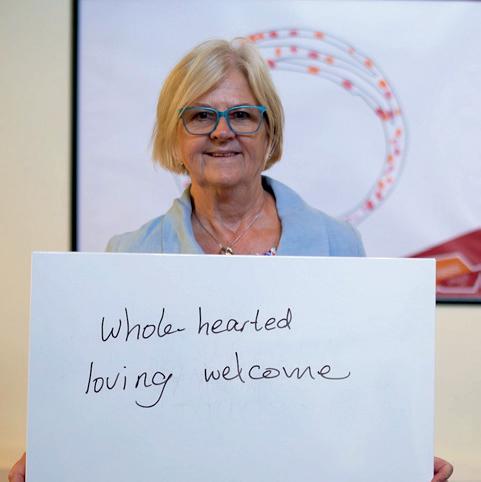 Whole-hearted
loving welcome